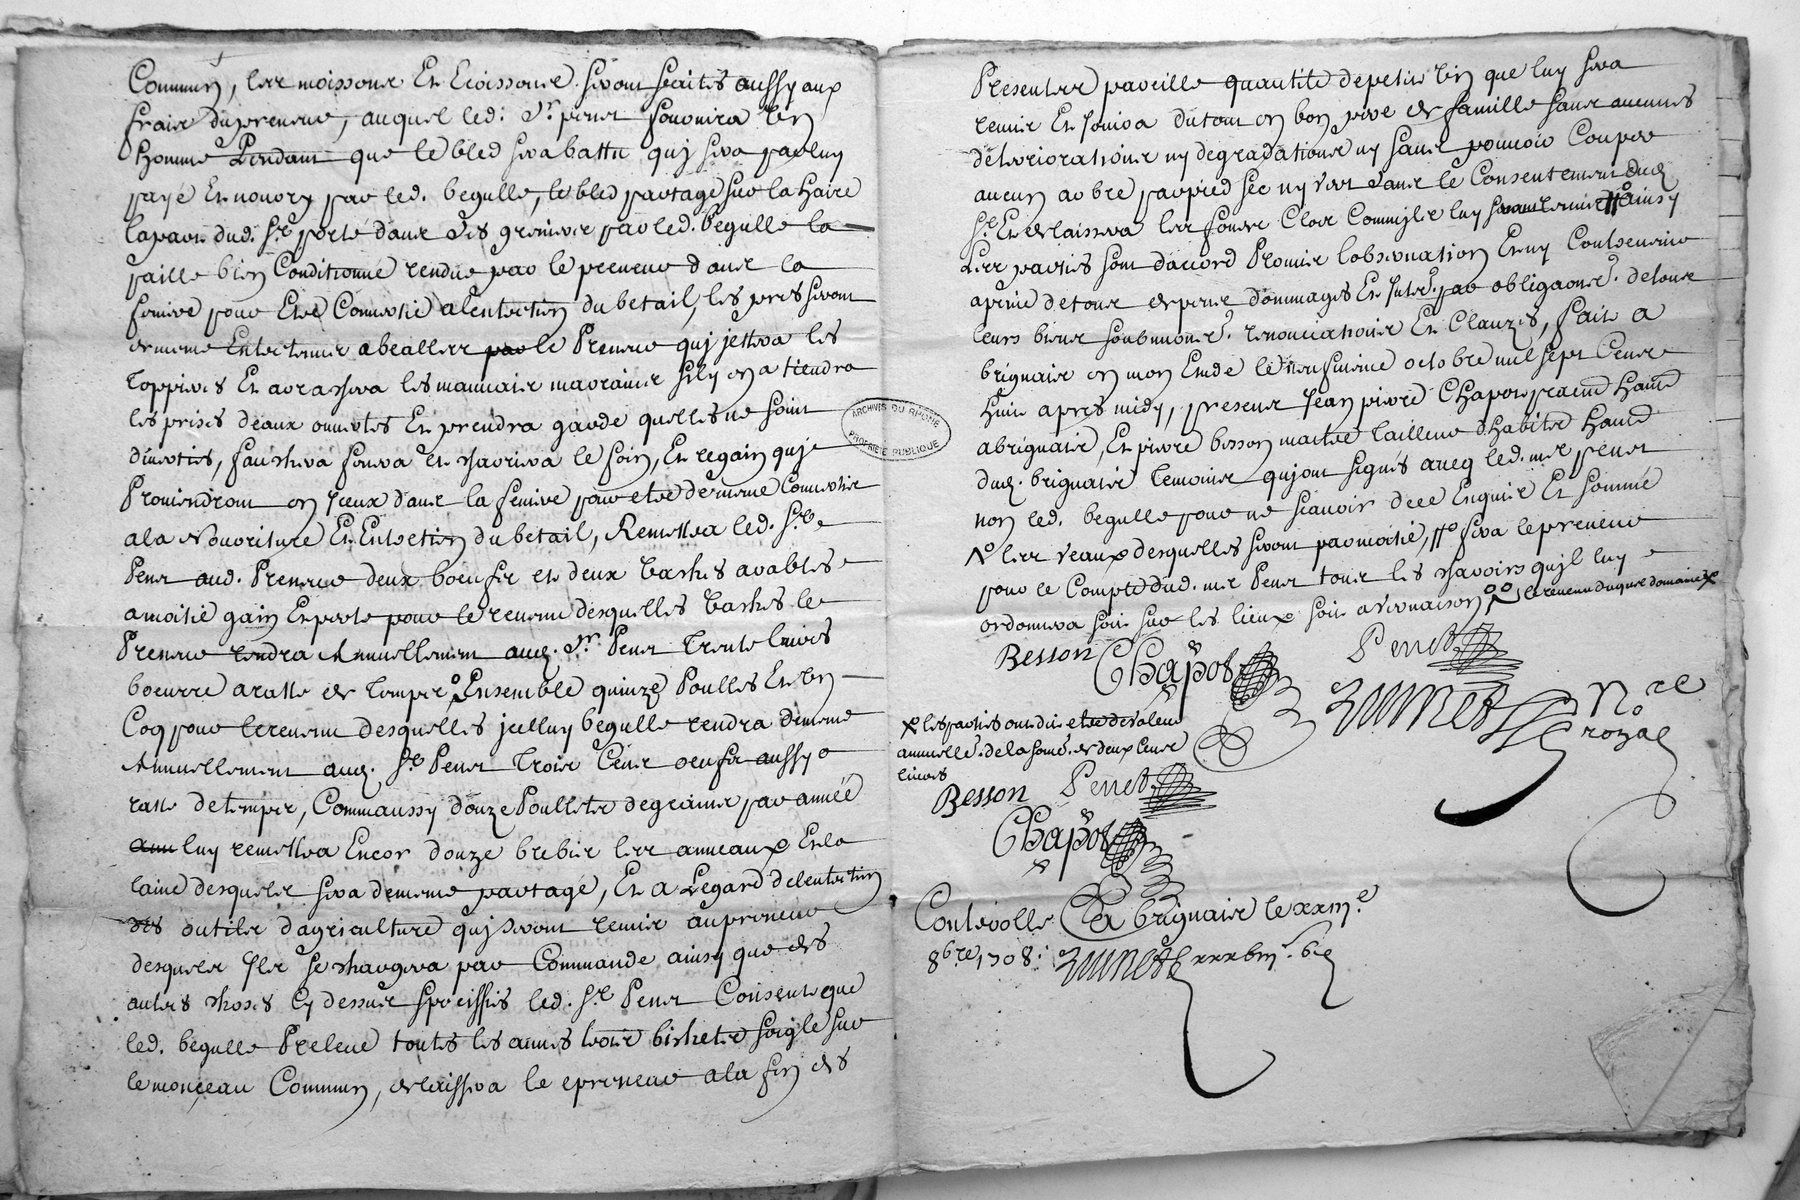 Commun, les moissons Et Ecossons seront faites aussy aux
fraix du preneur, auquel led. Sr. penet fournira Un
homme Pendant que le bled sera battu quj sera par luy
payé Et nourry par led. begulle, le bled partagé sur la haire
la part dud. Sr. porté dans ses greniers par led. Begulle la
paille bien Conditionné rendue par le preneur dans la
feniere pour Etre Convertie a lentretien du betail, les pres seront
de meme Entretenus a beallere par le Preneur quj jettera les
Toppieres Et arrachera les mauvais sil y en a tiendra
les prises deaux ouvertes Et prendra garde quelles ne soint
diverties, fauchera fenera et charriera le foin, Et regain quj
Proviendront en jceux dans la feniere pour etre de meme Convertie
a la Nourriture Et Entretien du betail, Remettra led. Sr.
Penet aud. Preneur deux boeufs et deux Vaches arables
a moitié gain Et perte pour le revenu desquelles Vaches le
Preneur rendra Annuellement aud. Sr. Penet Trente livres
boeurre a ratte de temps, Ensemble quinze Poulles Et Un
Coq pour le revenu desquelles jcelluy begulle rendra de meme
Annuellement aud. Sr. Penet Trois Cens oeufs aussy a
ratte de temps, Comm aussy douze Poullets de grains par année
luy remettra Encor douze brebis les anneaux Et la
laine desqueles sera de meme partagé, Et a Legard de lentretien
des outils dagriculture quj seront remis au preneur
desquels Il se chargera par Commande ainsy que des
autres choses Cy dessus speciffiés led. Sr. Penet Consent que
led. begulle Preleve toutes les années trois bichets soigle sur
le monceau Commun, delaissera le preneur a la fin des
Presentes pareille quantité de que luy sera
remis Et jouira du tout en bon pere de famille sans aucunes
deteriorations ny degradations ny sans pouvoir Couper
aucun arbre par pied sec ny vert sans le Consentement dud.
Sr. Et delaissera les fonds Clos Comm jls luy seront remis ainsy
Les parties sont daccord Promis lobservation Et ny Contrevenir
a peine de tous depens dommages Et Interets par obligaons. de tous
leurs biens soubmions. renonciations Et Clauzes, fait a
brignais en mon Etude le neufvieme octobre mil sept Cens
huit apres midy, presens Jean pierre Chapot praticn habitt
a brignais, Et pierre besson maitre Tailleur dhabits habitt
dud. brignais temoins qujont signés avec led. Sr. penet
non led. begulle pour ne sçavoir dece Enquis Et sommé
No les veaux desquelles seront par moitié, fera le preneur
pour le Compte dud. Sr. Penet tous les charrois qujl luy
ordonnera soit sur les lieux soit a vernaison le revenu duquel domaine
Besson Chapot Penet
Nore
royal
les parties ont dit etre de valeur
annuelle. de la somme. de deux Cens
livres
Besson Penet
Chapot
Conterolle a brignais le xxme
8bre 1708.